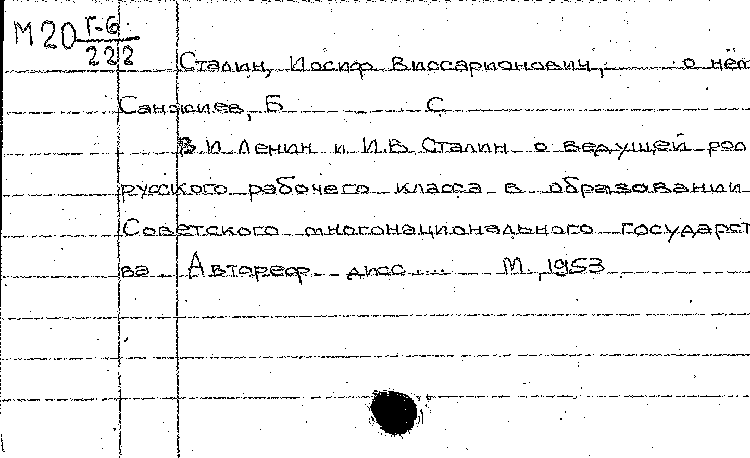 М20 Г-6
222
Сталин, Иосиф Виссарионович, о нём
Санжиев, Б С.
В.И. Ленин и И.В. Сталин о ведущей рол
русского рабочего класса в образовании
Советского многонационального государст
ва Автореф. дисс.... М., 1953